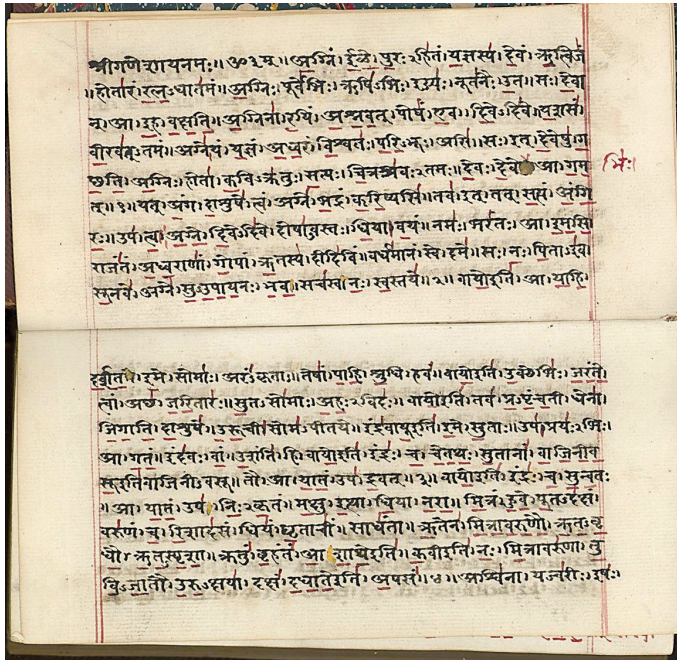 श्रीगणेशायनमः॥ॐ३म्॥अग्निं।ईळे।पुरःऽहितं।यज्ञस्य।देवं।ऋत्विजं
॥होतारं।रत्नऽधातमं॥अग्निः।पूर्वेभिः।ऋषिऽभिः।ईड्यः।नूतनैः।उत।सः।देवा
न्।आ।इह।वक्षति॥अग्निना।रयिं।अश्नवत्।पोषं।एव।दिवेऽदिवे।यशसं
वीरवत्ऽतमं॥अग्ने।यं।यज्ञं।अध्वरं।विश्वतः।परिऽभूः।असि।सः।इत्।देवेषु।ग
च्छति॥अग्निः।होता।कविऽक्रतुः।सत्यः।चित्रश्रवःऽतमः।देवः।देवे।आ।गम
भिः।
त्॥१॥यत्।अंग।दाशुषे।त्वं।अग्ने।भद्रं।करिष्यसि।तव।इत्।तत्।सत्यं।अंगि
रः॥उप।त्वा।अग्ने।दिवेऽदिवे।दोषाऽवस्तः।धिया।वयं।नमः।भरंतः।आ।इमसि
राजंतं।अध्वराणां।गोपां।ऋतस्य।दीदिविं।वर्धमानं।स्वे।दमे॥सः।नः।पिताऽइव
सूनवे।अग्ने।सुऽउपायनः।भव।सचस्व।नः।स्वस्तये॥२॥वायोइति।आ।याहि
दर्शत।इमे।सोमाः।अरंऽकृताः॥तेषां।पाहि।श्रुधि।हवं॥वायोइति।उक्थेभिः।जरंते
त्वां।अच्छ।जरितारः॥सुतऽसोमाः।अहःऽविदः॥वायोइति।तव।प्रऽपृंचती।धेना
जिगाति।दाशुषे॥उरूची।सोमऽपीतये॥इंद्रवायूइति।इमे।सुताः॥उप।प्रयःऽभिः।
आ।गतं॥इंदवः।वां।उशंति।हि॥वायोइति।इंद्रः।च।चेतथः।सुतानां।वाजिनीव
सूइतिवाजिनीऽवसू॥तौ।आ।यातं।उप।द्रवत्॥३॥वायोइति।इंद्रः।च।सुन्वतः
॥आ।यातं।उप।निःऽकृतं॥मक्षु।इत्था।धिया।नरा॥मित्रं।हुवे।पूतऽदक्षं
वरुणं।च।रिशादसं।धियं।घृताचीं।साधंता॥ऋतेन।मित्रावरुणौ।ऋतऽवृ
धौ।ऋतऽस्पृशा॥क्रतुं।बृहंतं।आ।शाथेइति॥कवीइति।नः।मित्रावरुणा।तु
विऽजातौ।उरुऽक्षया।दक्षं।दधातेइति।अपसं॥४॥अश्विना।यज्वरीः।इषः।